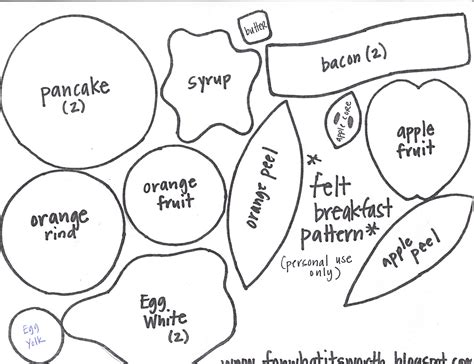 butter
pancake
(2)
syrup
bacon (2)
apple core
apple
fruit
orange peel
orange
fruit
orange
rind
* felt
breakfast
pattern *
(personal use
only)
apple peel
Egg
White
(2)
Egg
Yolk
www.forwhatitsworth.blogspot.com